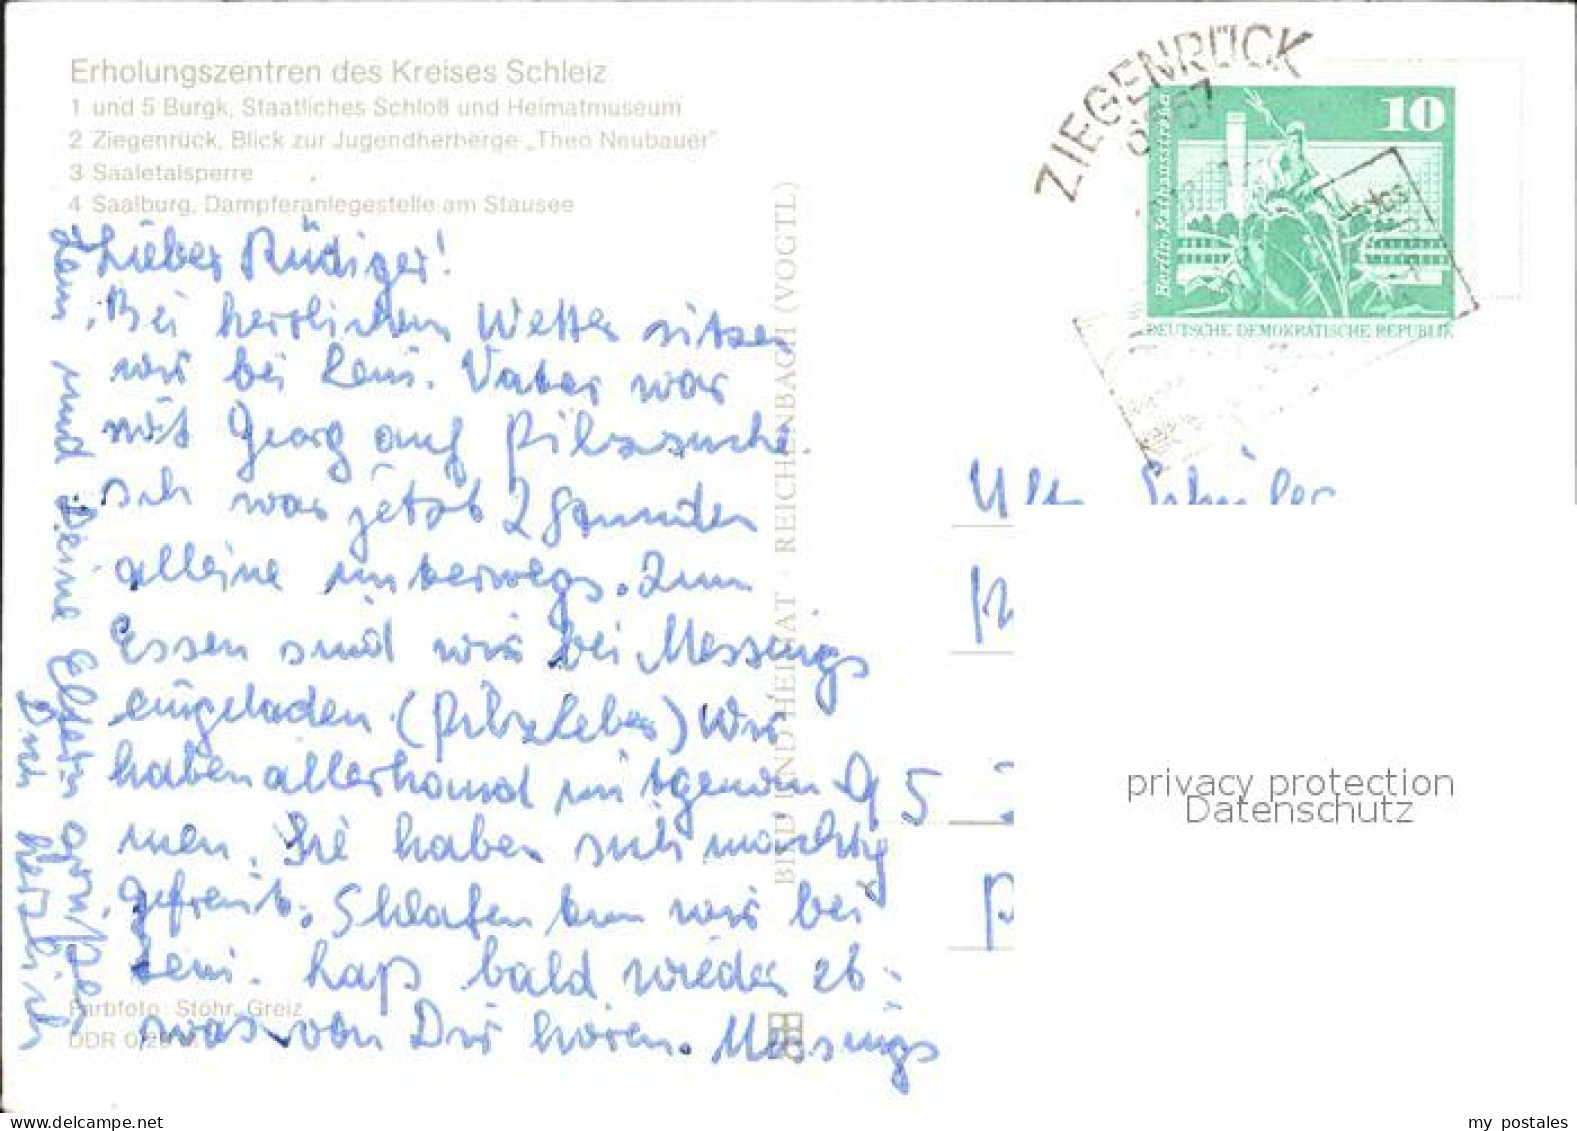 Erholungszentren des Kreises Schleiz
1 und 5 Burgk, Staatliches Schloß und Heimatmuseum
2 Ziegenrück, Blick zur Jugendherberge „Theo Neubauer"
3 Saaletalsperre
4 Saalburg, Dampferanlegestelle am Stausee
Lieber Rüdiger!
Bei herrlichem Wetter sitzen
wir bei Leni. Vater war
mit Georg auf Pilzsuche.
Ich war jetzt 2 Stunden
alleine unterwegs. Zum
Essen sind wir bei Messings
eingeladen (Pilzleber) Wir
haben allerhand mitgenom
men. Sie haben sich mächtig
gefreut. Schlafen tun wir bei
Leni. Laß bald wieder et-
was von Dir hören. Messings
Leni und Deine Eltern
Dich herzlich
Farbfoto: Stöhr, Greiz
DDR
BILD UND HEIMAT · REICHENBACH (VOGTL)
ZIEGENRÜCK
6857
10
Berlin Rathausstraße
DEUTSCHE DEMOKRATISCHE REPUBLIK
5
privacy protection
Datenschutz
my postales